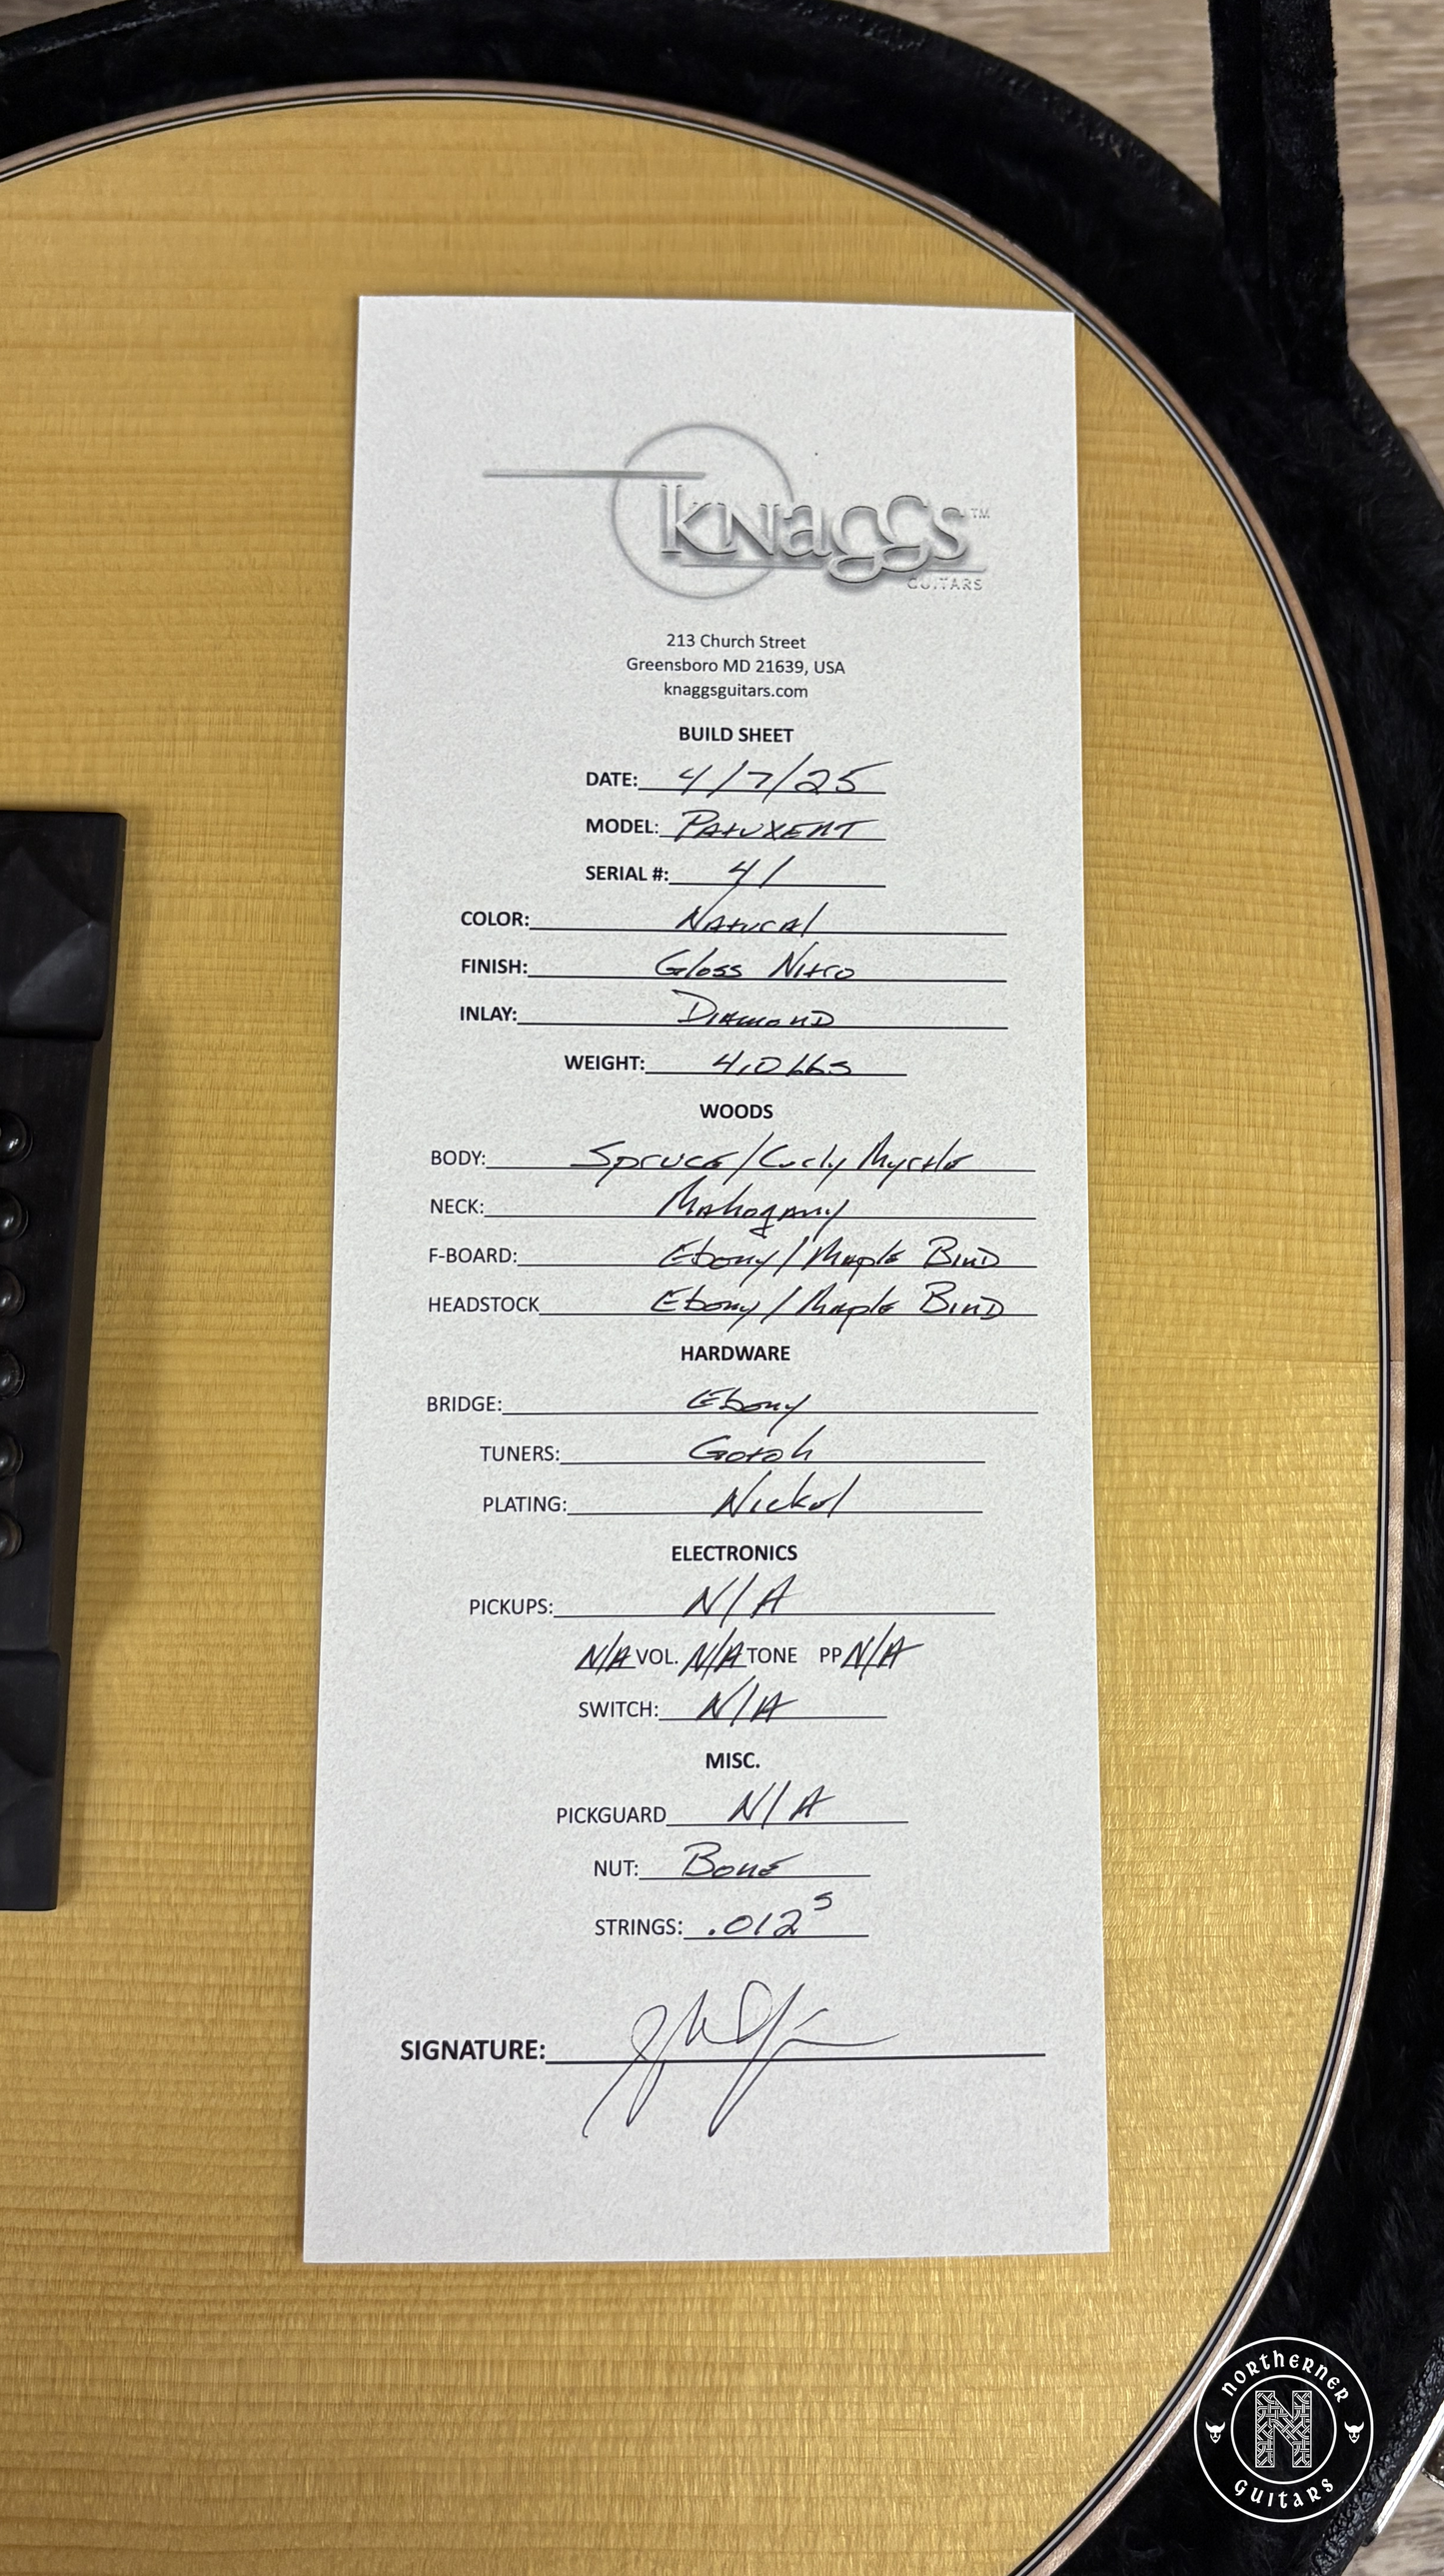 Knaggs™
GUITARS
213 Church Street
Greensboro MD 21639, USA
knaggsguitars.com
BUILD SHEET
DATE: 4/7/25
MODEL: Patuxent
SERIAL #: 41
COLOR: Natural
FINISH: Gloss Nitro
INLAY: Diamond
WEIGHT: 4.0 lbs
WOODS
BODY: Spruce/Curly Myrtle
NECK: Mahogany
F-BOARD: Ebony/Maple Bind
HEADSTOCK Ebony/Maple Bind
HARDWARE
BRIDGE: Ebony
TUNERS: Gotoh
PLATING: Nickel
ELECTRONICS
PICKUPS: N/A
N/A VOL. N/A TONE PP N/A
SWITCH: N/A
MISC.
PICKGUARD N/A
NUT: Bone
STRINGS: .012s
SIGNATURE:
NORTHERNER
N
GUITARS